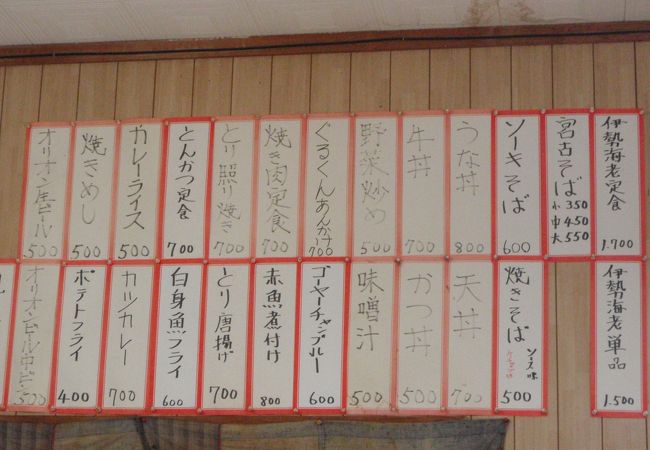 伊勢海老定食
1.700
宮古そば
小 350
中 450
大 550
ソーキそば
600
うな丼
800
牛丼
700
野菜炒め
500
ぐるくんあんかけ
700
焼き肉定食
700
とり照り焼き
700
とんかつ定食
700
カレーライス
500
焼きめし
500
オリオン生ビール
500
伊勢海老単品
1.500
焼きそば
ソース味
500
天丼
700
かつ丼
500
味噌汁
500
ゴーヤーチャンプルー
600
赤魚煮付け
800
とり唐揚げ
700
白身魚フライ
600
カツカレー
700
ポテトフライ
400
オリオンビール中ビン
500